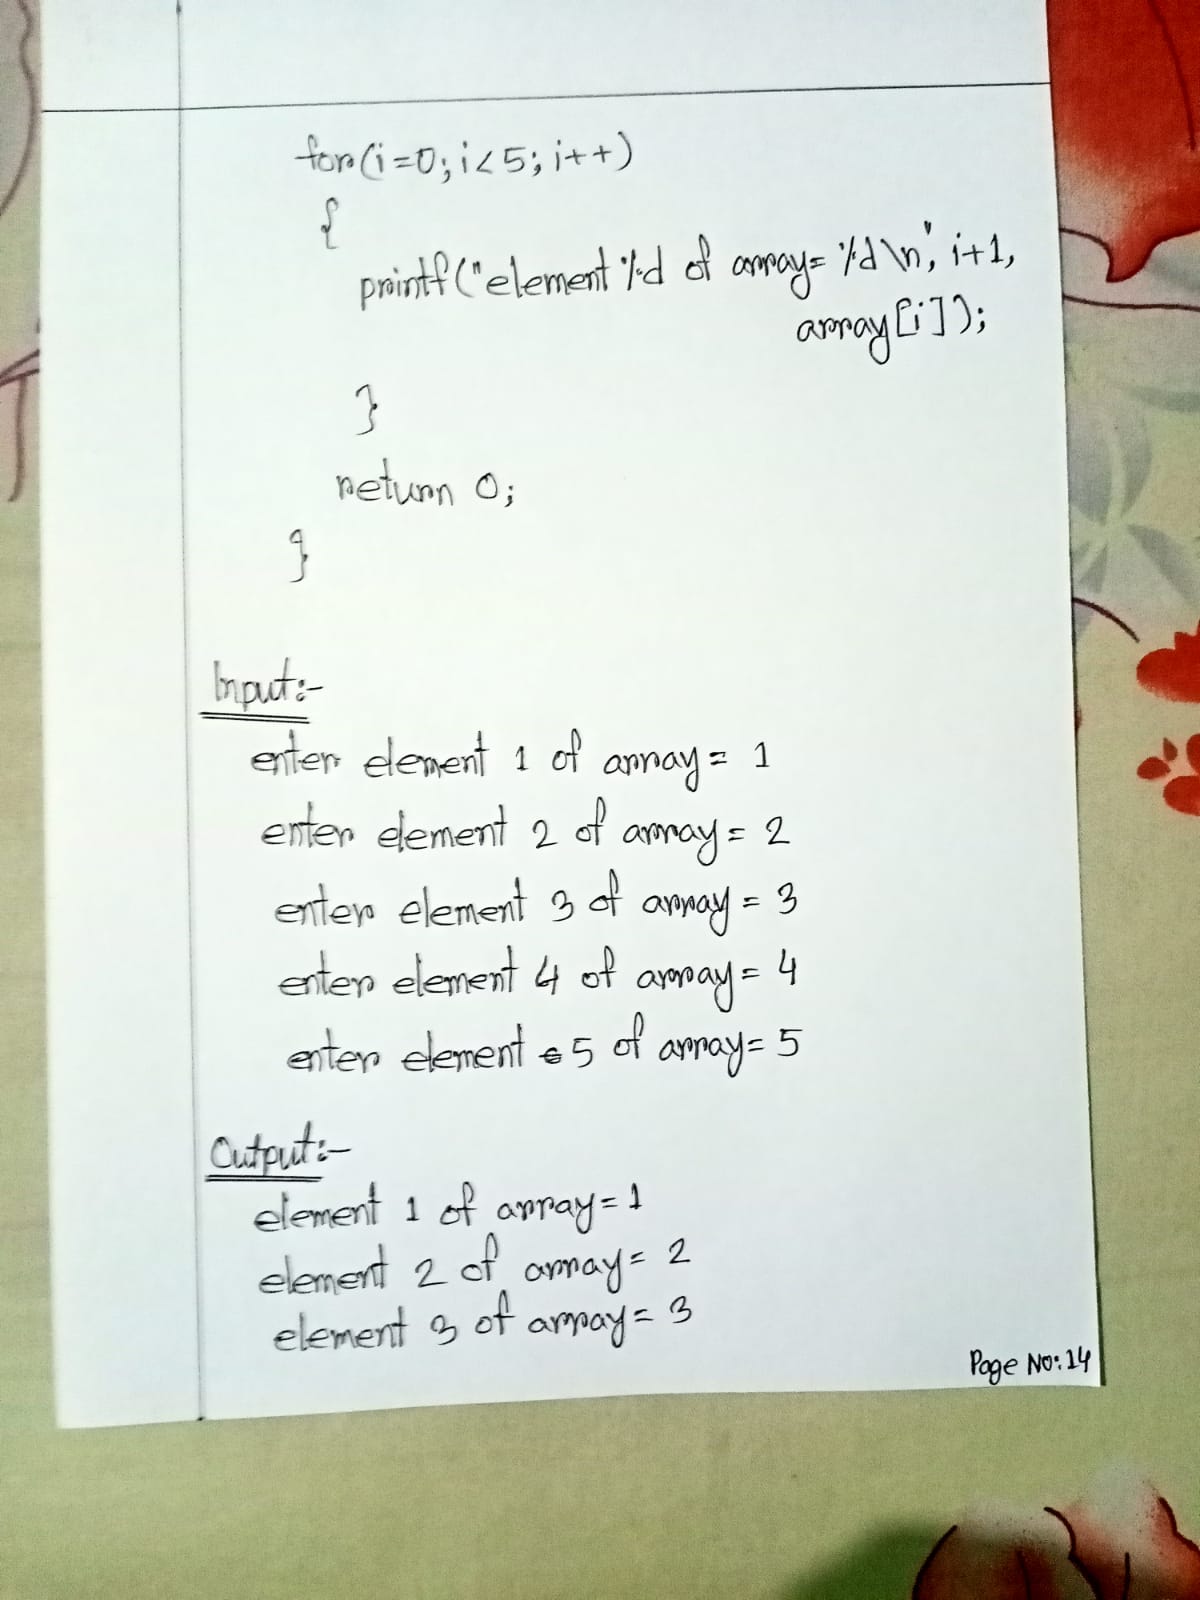 for(i=0; i<5; i++)
{
printf("element %d of array= %d\n", i+1,
array[i]);
}
return 0;
}
Input:-
enter element 1 of array= 1
enter element 2 of array= 2
enter element 3 of array= 3
enter element 4 of array= 4
enter element 5 of array= 5
Output:-
element 1 of array= 1
element 2 of array= 2
element 3 of array= 3
Page No: 14